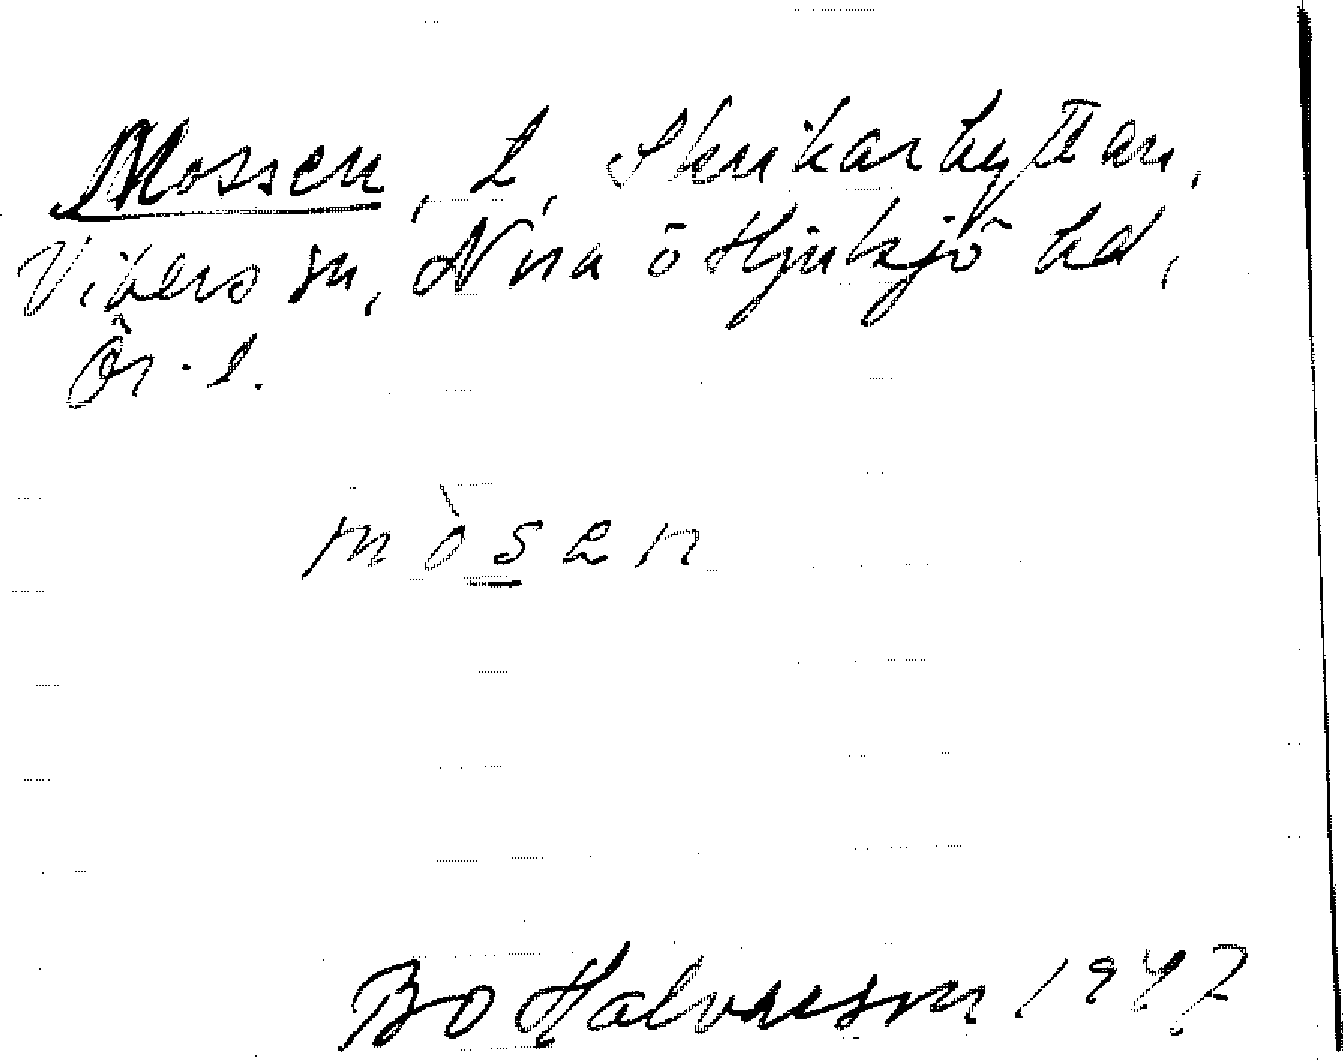 Mossen, t, Skrikarhyttan,
Vikers sn, Nora o Hjulsjö hd,
Ör. l.
mòsen
Bo Halvarsson 1947